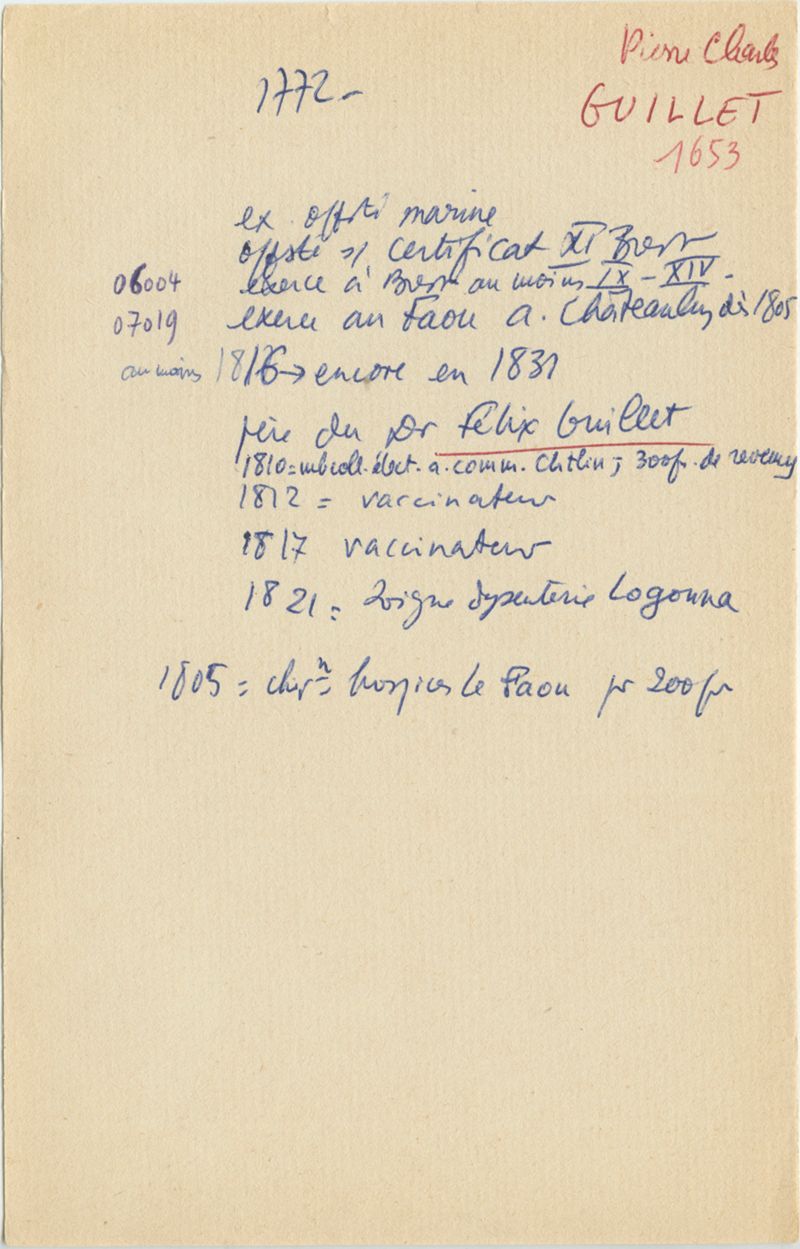 Pierre Charles
GUILLET
1653
1772 -
ex offsté marine
offsté s/ certificat XI Brest
06004 exerce à Brest au moins IX - XIV -
07019 exerce au Faou a. Châteaulin dès 1805
au moins 1816 → encore en 1831
père du Dr Félix Guillet
1810 = mb coll. élect. a. comm. Chtlin ; 300 fr. de revenu
1812 = vaccinateur
1817 vaccinateur
1821 = soigne dysenterie Logonna
1805 = chirn = hospices Le Faou pr 200 fr